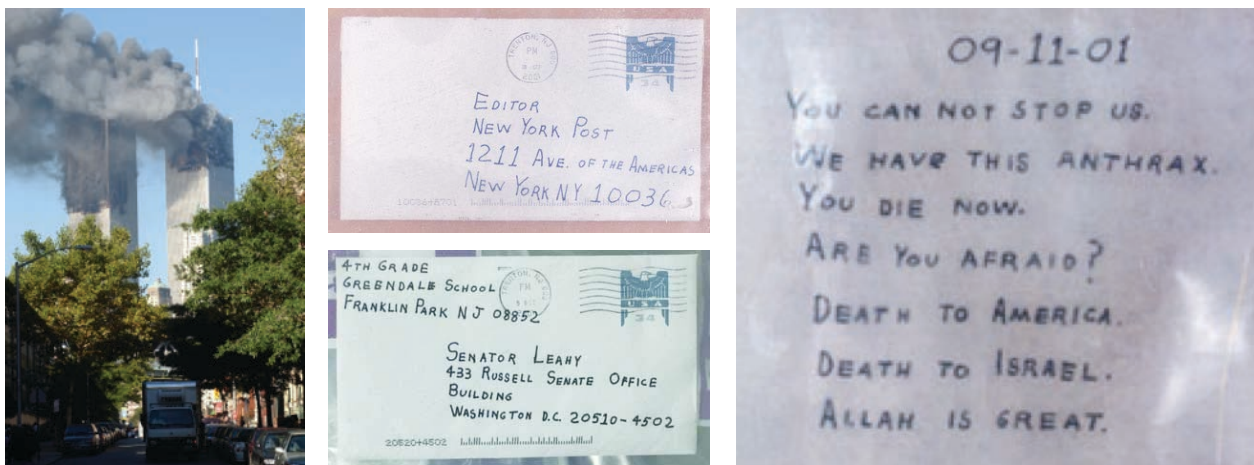 TRENTON, NJ
PM
2001
USA
34
EDITOR
NEW YORK POST
1211 AVE. OF THE AMERICAS
NEW YORK NY 10036
10036+8701
4TH GRADE
GREENDALE SCHOOL
FRANKLIN PARK NJ 08852
TRENTON, NJ
PM
USA
34
SENATOR LEAHY
433 RUSSELL SENATE OFFICE
BUILDING
WASHINGTON D.C. 20510-4502
20520+4502
09-11-01
YOU CAN NOT STOP US.
WE HAVE THIS ANTHRAX.
YOU DIE NOW.
ARE YOU AFRAID?
DEATH TO AMERICA.
DEATH TO ISRAEL.
ALLAH IS GREAT.